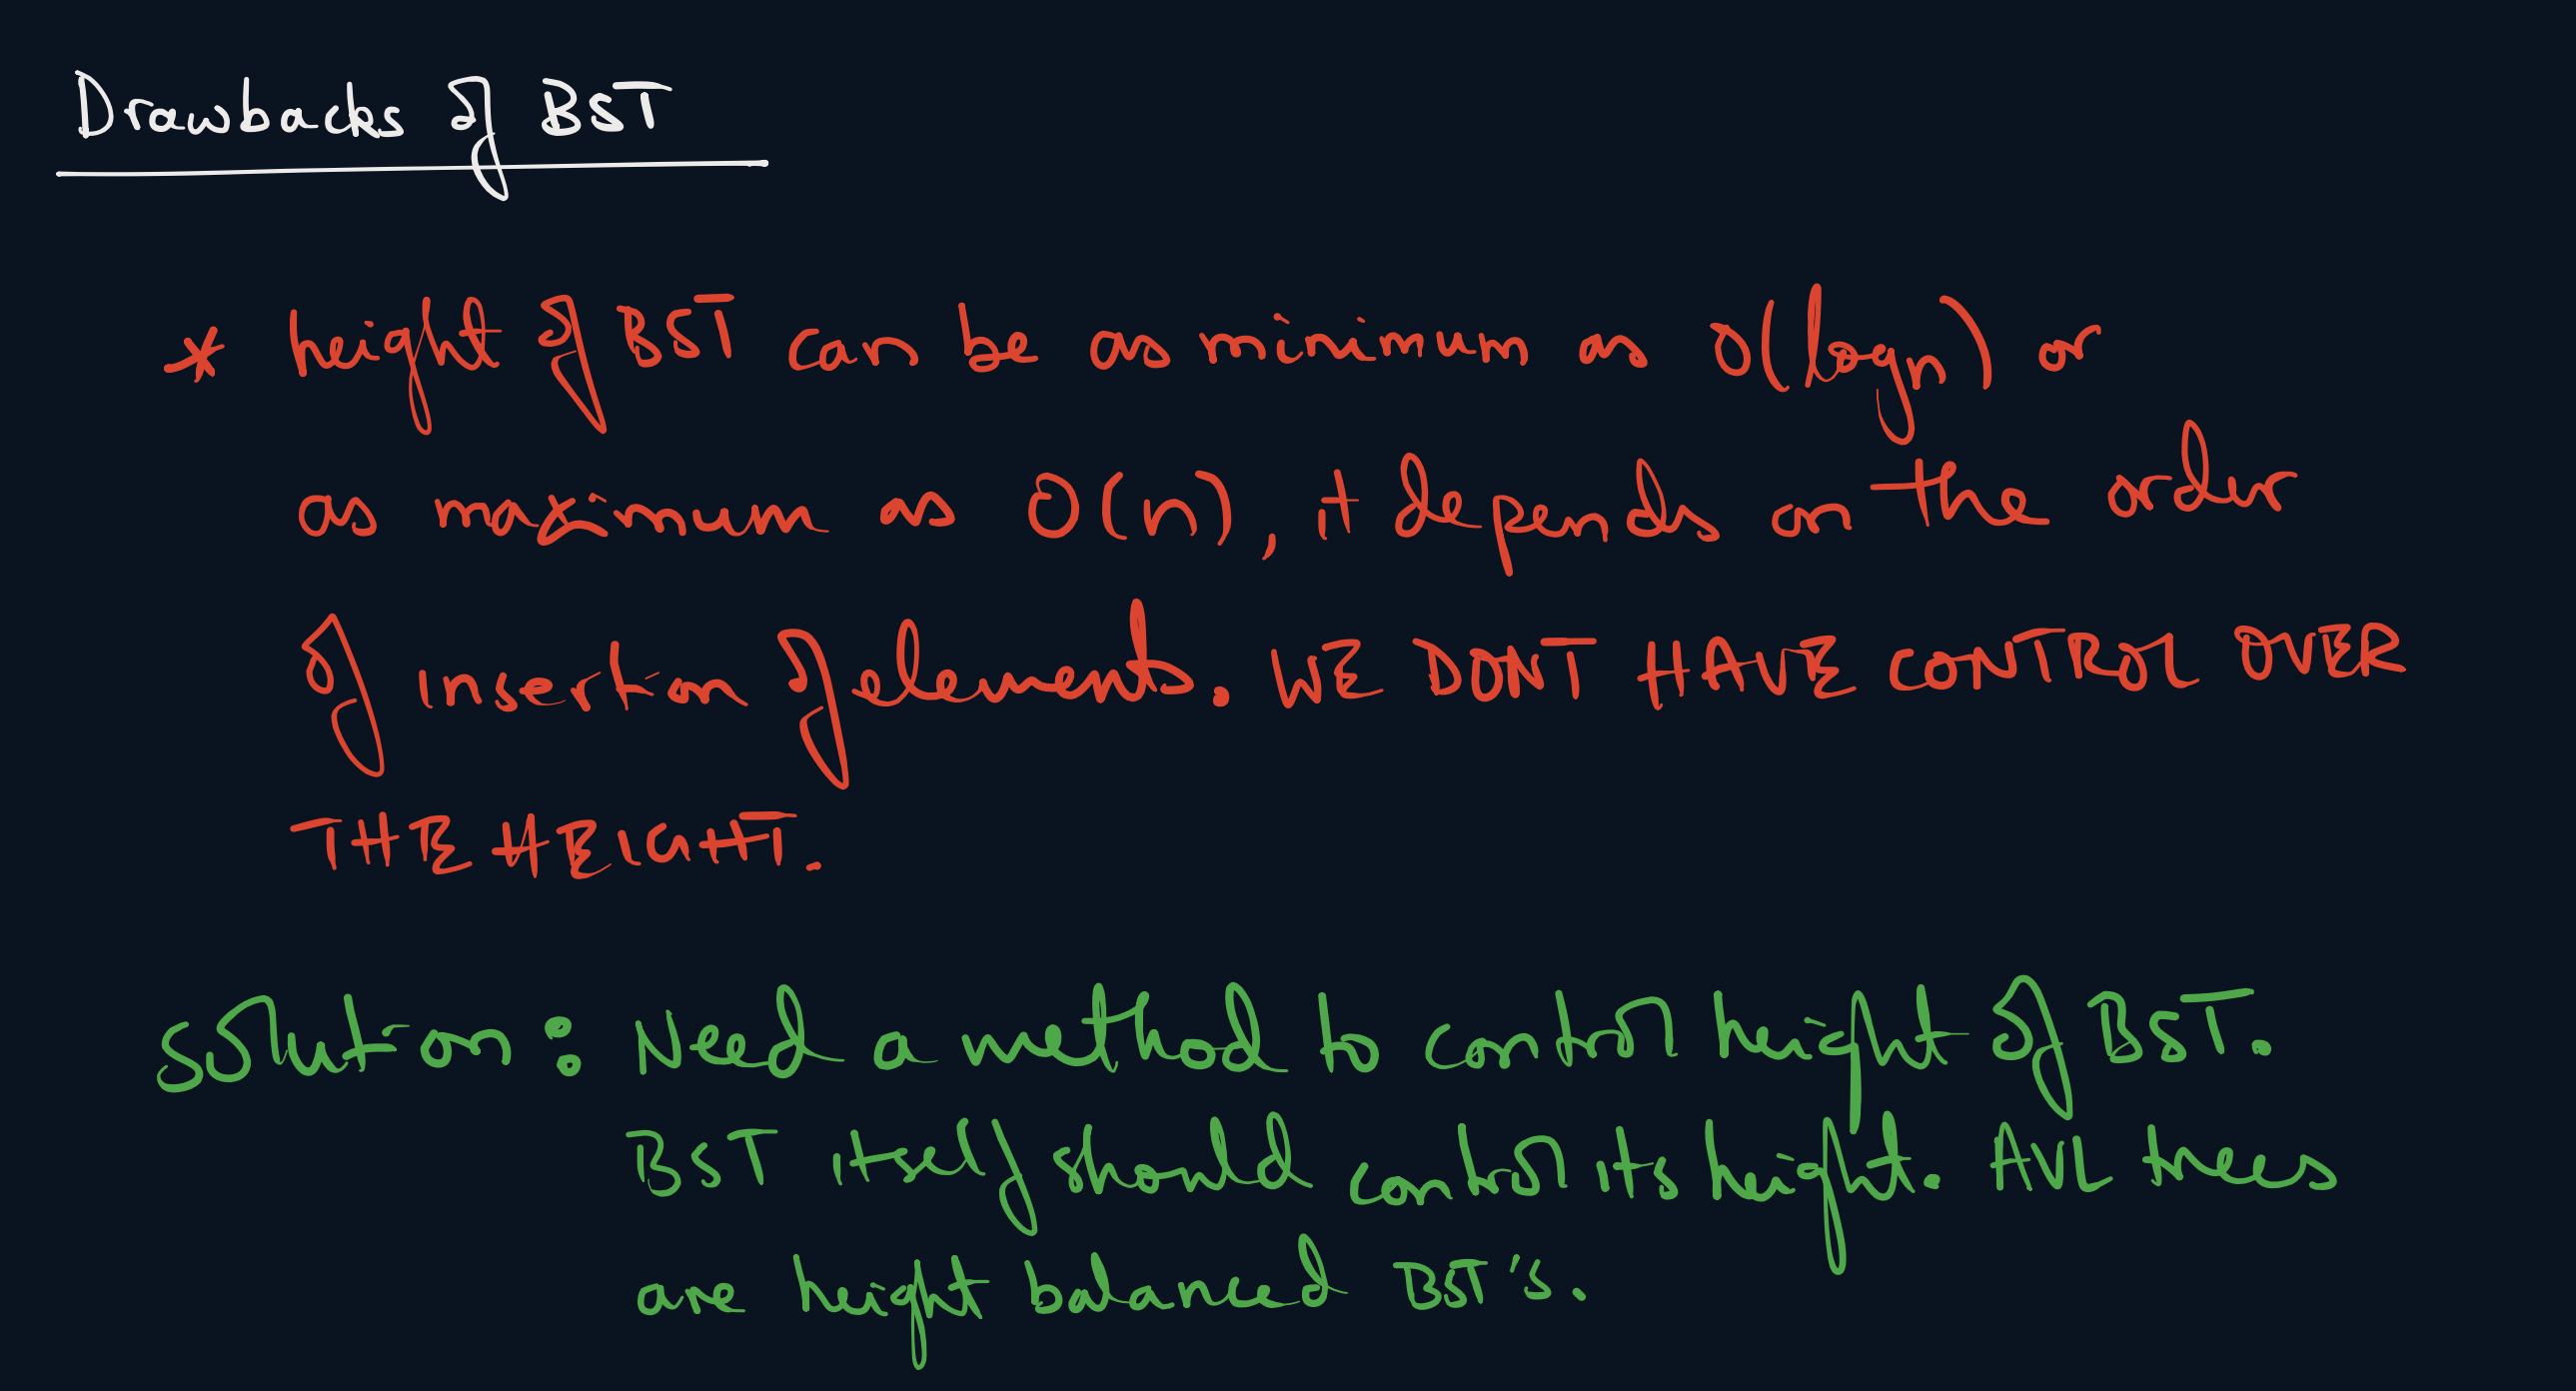 Drawbacks of BST
* height of BST can be as minimum as O(logn) or
as maximum as O(n), it depends on the order
of insertion of elements. WE DONT HAVE CONTROL OVER
THE HEIGHT.
Solution: Need a method to control height of BST.
BST itself should control its height. AVL trees
are height balanced BST's.